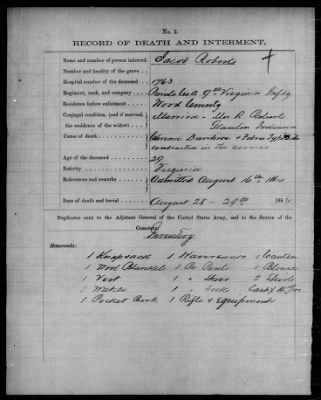 No. 1.
RECORD OF DEATH AND INTERMENT.
Name and number of person interred, Jacob Roberts
Number and locality of the grave
Hospital number of the deceased 1763
Regiment, rank, and company Co A 9th Virginia Infty
Residence before enlistment Wood County
Conjugal condition (and if married, Married - R. Roberts
the residence of the widow) Indiana
Cause of death Chronic Diarrhoea
contracted in the service
Age of the deceased 29
Nativity Virginia
References and remarks Admitted August 16th 1864
Date of death and burial August 28 - 29th 1864
Duplicates sent to the Adjutant General of the United States Army, and to the Sexton of the
Cemetery.
Inventory
Memoranda:
1 Knapsack 1 Haversack 1 Canteen
1 Wool Blanket 1 Pr Pants 1 Blouse
1 Vest 1 " Shoes 2 Shirts
1 " Socks
1 Pocket Book 1 Rifle & Equipments